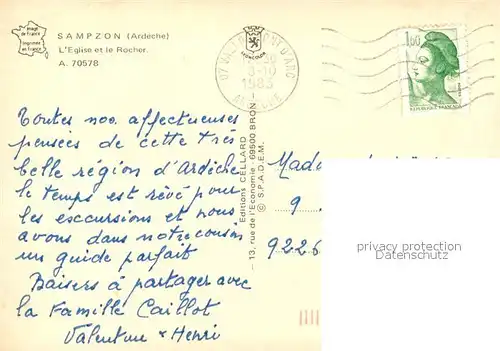 Image de France
Imprimée en France
SAMPZON (Ardèche)
L'Eglise et le Rocher.
A. 70578
COMBIER
07 VALLON PONT D'ARC
-10
1983
ARDECHE
1,60
REPUBLIQUE FRANÇAISE
Toutes nos affectueuses
pensées de cette très
belle région d'Ardèche
le temps est rêvé pour
les escursions et nous
avons dans notre cousin
un guide parfait
Baisers à partager avec
la Famille Caillot
Valentine & Henri
Editions CELLARD
13, rue de l'Economie - 69500 BRON
© S.P.A.D.E.M.
Mada
9
9226
privacy protection
Datenschutz